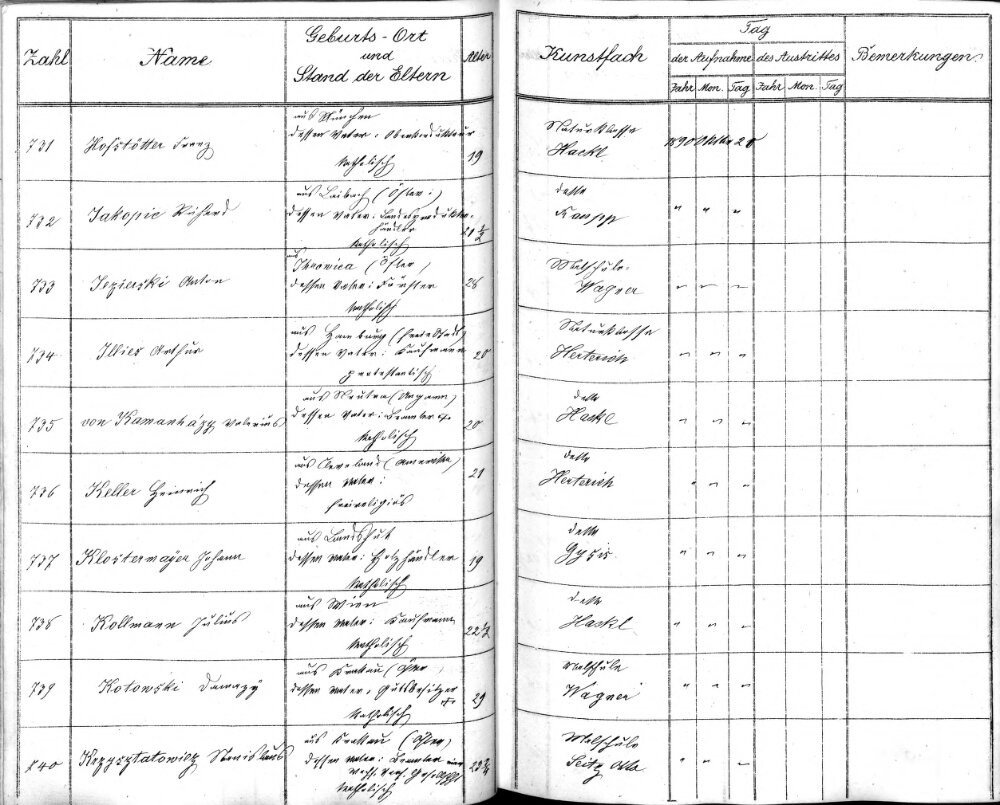 Zahl
Name
Geburts-Ort
und
Stand der Eltern
Alter
Kunstfach
Tag
der Aufnahme
des Austrittes
Jahr Mon. Tag
Jahr Mon. Tag
Bemerkungen
731
Hofstötter Franz
aus München
dessen Vater:
katholisch
19
Naturklasse
Hackl
1890 Oktbr
732
Jakopic Richard
aus Laibach (Öster:)
dessen Vater: Landesproduktenhändler
katholisch
21 ½
detto
Raupp
" " "
733
Jezierski Anton
aus
(Öster)
dessen Vater: Förster
katholisch
28
Malschule
Wagner
" " "
734
Illies Arthur
aus Hamburg (freie Stadt)
dessen Vater: Kaufmann
protestantisch
20
Naturklasse
Herterich
" " "
735
von Valerius
aus Neutra (Ungarn)
dessen Vater: Beamter
katholisch
20
detto
Hackl
" " "
736
Keller Heinrich
aus Cleveland (Amerika)
dessen Vater:
freireligiös
21
detto
Herterich
" " "
737
Klostermayer Johann
aus Landshut
dessen Vater: Holzhändler
katholisch
19
detto
Gysis
" " "
738
Kollmann Julius
aus Wien
dessen Vater: Kaufmann
katholisch
22 ½
detto
Hackl
" " "
739
Kotowski Damazy
aus Krakau (Öster,
dessen Vater, Gutsbesitzer
katholisch
29
Malschule
Wagner
" " "
740
Stanislaus
aus Krakau (Öster)
dessen Vater: Beamter
katholisch
Malschule
Seitz Otto
" " "